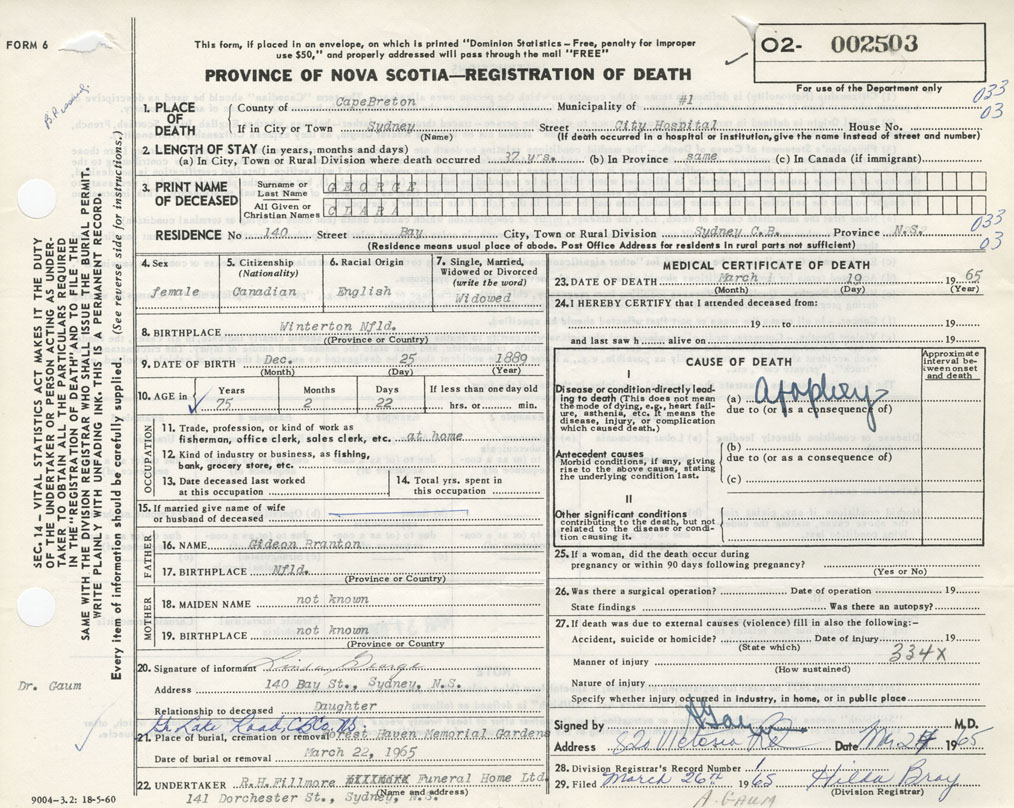 FORM 6
This form, if placed in an envelope, on which is printed "Dominion Statistics – Free, penalty for improper
use $50," and properly addressed will pass through the mail "FREE"
02- 002503
For use of the Department only
PROVINCE OF NOVA SCOTIA—REGISTRATION OF DEATH
033
03
1. PLACE OF DEATH
County of CapeBreton Municipality of #1
If in City or Town Sydney (Name) Street City Hospital House No.
(If death occurred in a hospital or institution, give the name instead of street and number)
2. LENGTH OF STAY (in years, months and days)
(a) In City, Town or Rural Division where death occurred 37 yrs. (b) In Province same (c) In Canada (if immigrant)
3. PRINT NAME OF DECEASED
Surname or Last Name GEORGE
All Given or Christian Names CLARA
033
03
RESIDENCE No 140 Street Bay City, Town or Rural Division Sydney C.B. Province N.S.
(Residence means usual place of abode. Post Office Address for residents in rural parts not sufficient)
4. Sex female
5. Citizenship (Nationality) Canadian
6. Racial Origin English
7. Single, Married, Widowed or Divorced (write the word) Widowed
8. BIRTHPLACE Winterton Nfld.
((Province or Country)
9. DATE OF BIRTH Dec. 25 1889
(Month) (Day) (Year)
10. AGE in Years 75 Months 2 Days 22 If less than one day old hrs. or min.
OCCUPATION
11. Trade, profession, or kind of work as
fisherman, office clerk, sales clerk, etc. at home
12. Kind of industry or business, as fishing,
bank, grocery store, etc.
13. Date deceased last worked
at this occupation
14. Total yrs. spent in
this occupation
15. If married give name of wife
or husband of deceased
FATHER
16. NAME Gideon Branton
17. BIRTHPLACE Nfld.
(Province or Country)
MOTHER
18. MAIDEN NAME not known
19. BIRTHPLACE not known
(Province or Country
20. Signature of informant George
Address 140 Bay St., Sydney, N.S.
Relationship to deceased Daughter
21. Place of burial, cremation or removal Forest Haven Memorial Gardens
Date of burial or removal March 22, 1965
22. UNDERTAKER R.H.Fillmore Funeral Home Ltd
(Name and address)
141 Dorchester St., Sydney, N.S.
MEDICAL CERTIFICATE OF DEATH
23. DATE OF DEATH March 19 1965
(Month) (Day) (Year)
24. I HEREBY CERTIFY that I attended deceased from:
19 to 19
and last saw h alive on 19
CAUSE OF DEATH
Approximate interval between onset and death
I
Disease or condition directly leading to death (This does not mean the mode of dying, e.g., heart failure, asthenia, etc. It means the disease, injury, or complication which caused death.)
(a) Apoplexy
due to (or as a consequence of)
Antecedent causes
Morbid conditions, if any, giving rise to the above cause, stating the underlying condition last.
(b)
due to (or as a consequence of)
(c)
II
Other significant conditions
contributing to the death, but not related to the disease or condition causing it.
25. If a woman, did the death occur during
pregnancy or within 90 days following pregnancy?
(Yes or No)
26. Was there a surgical operation? Date of operation 19
State findings Was there an autopsy?
27. If death was due to external causes (violence) fill in also the following:–
Accident, suicide or homicide? Date of injury 19
(State which)
334X
Manner of injury
(How sustained)
Nature of injury
Specify whether injury occurred in industry, in home, or in public place
Signed by M.D.
Address Date 1965
28. Division Registrar's Record Number
29. Filed March 26th 1965 Hilda Bray
(Division Registrar)
A. GAUM
SEC. 14 – VITAL STATISTICS ACT MAKES IT THE DUTY
OF THE UNDERTAKER OR PERSON ACTING AS UNDER-
TAKER TO OBTAIN ALL THE PARTICULARS REQUIRED
IN THE "REGISTRATION OF DEATH" AND TO FILE THE
SAME WITH THE DIVISION REGISTRAR WHO SHALL ISSUE THE BURIAL PERMIT.
WRITE PLAINLY WITH UNFADING INK. THIS IS A PERMANENT RECORD.
Every item of information should be carefully supplied. (See reverse side for instructions.)
Dr. Gaum
9004–3.2: 18-5-60